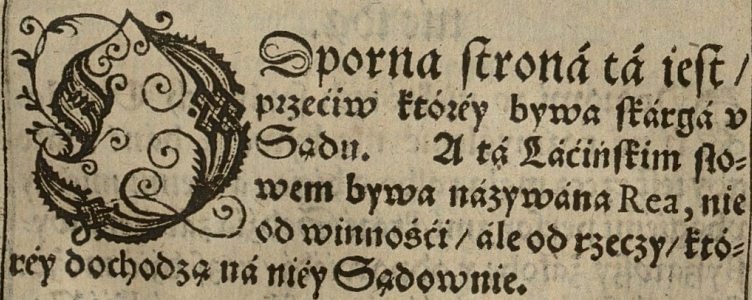 ODporna ſtroná tá ieſt /
przećiw któréy bywa ſkárgá v
Sądu. A tá Łáćińſkim ſło⸗
wem bywa názywána Rea, nie
od winnośći / ále od rzeczy / któ⸗
réy dochodzą ná niéy Sądownie.